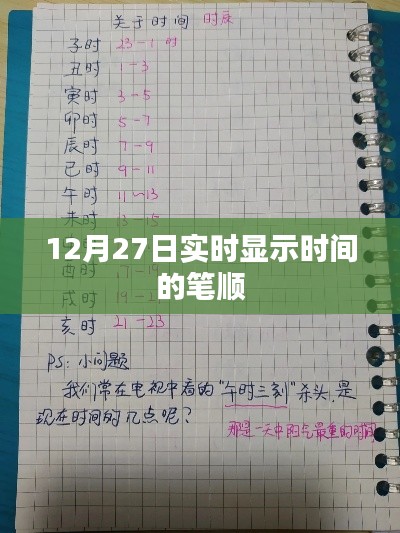 关于时间 时辰
子时 23-1时
丑时 1-3
寅时 3-5
卯时 5-7
辰时 7-9
巳时 9-11
午时 11~13
未时 13-15
12月27日实时显示时间
的笔顺
酉时 17-19
戌时 19-21
亥时 21-23
PS:小问题
我们常在电视中看的"午时三刻"杀头,是
现在时间的几点呢?
那是一天中阳气最重的时间